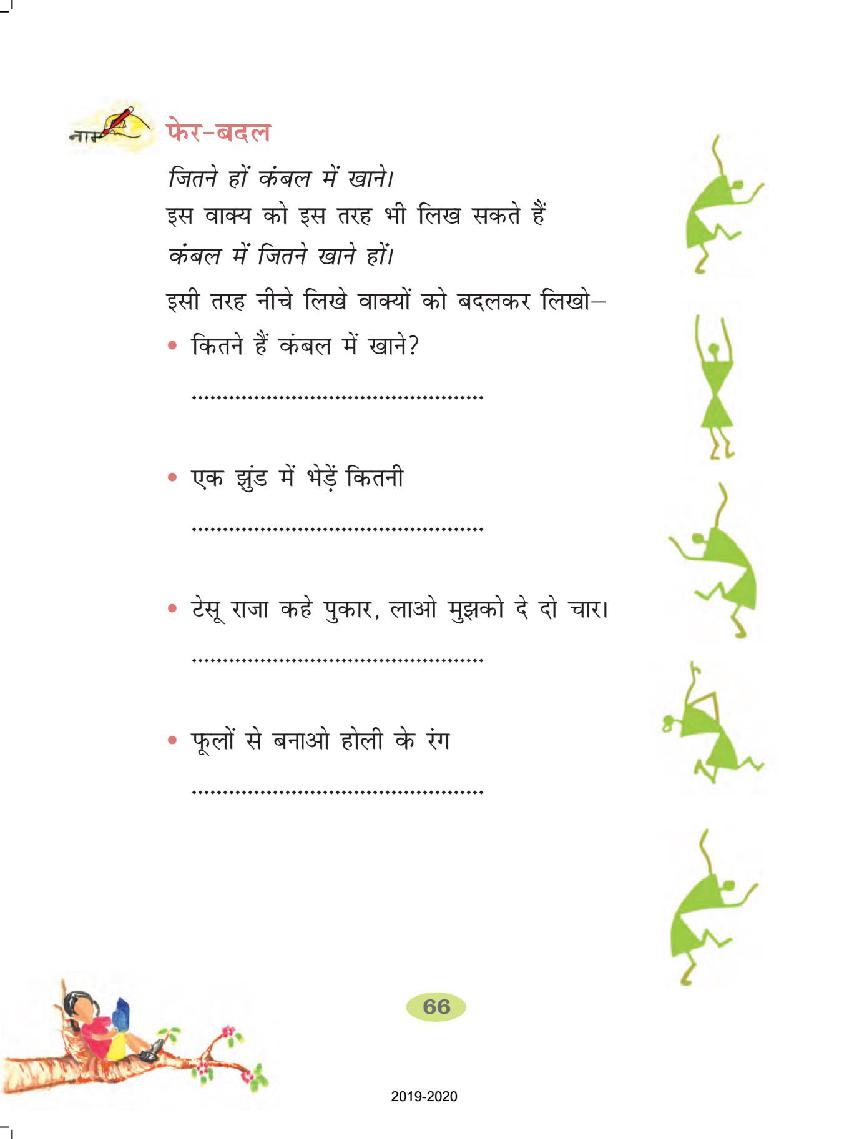 नाम
फेर-बदल
जितने हों कंबल में खाने।
इस वाक्य को इस तरह भी लिख सकते हैं
कंबल में जितने खाने हों।
इसी तरह नीचे लिखे वाक्यों को बदलकर लिखो–
• कितने हैं कंबल में खाने?
................................................
• एक झुंड में भेड़ें कितनी
................................................
• टेसू राजा कहे पुकार, लाओ मुझको दे दो चार।
................................................
• फूलों से बनाओ होली के रंग
................................................
66
2019-2020